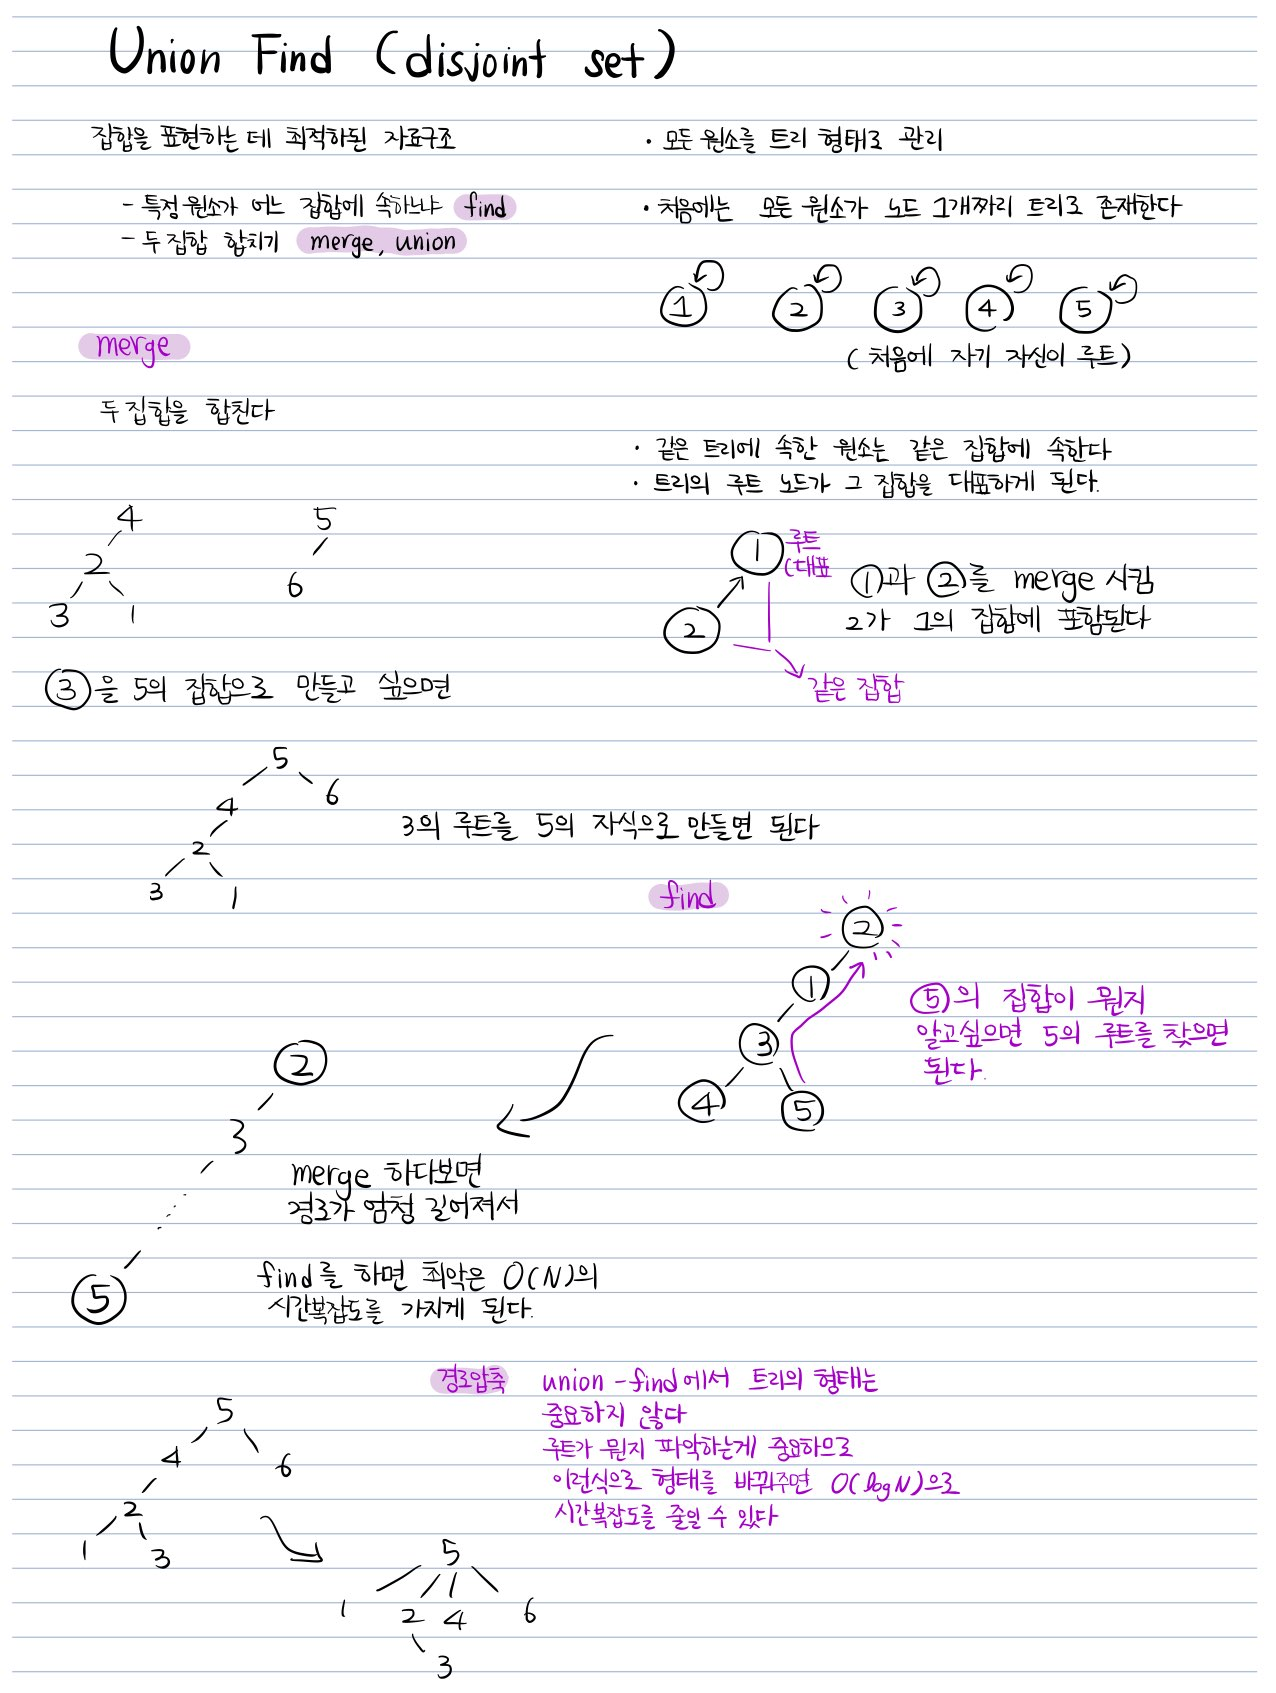 Union Find (disjoint set)
집합을 표현하는 데 최적화된 자료구조
- 특정 원소가 어느 집합에 속하느냐 find
- 두 집합 합치기 merge, union
merge
두 집합을 합친다
4
2
3 1
5
6
③을 5의 집합으로 만들고 싶으면
5
4 6
2
3 1
3의 루트를 5의 자식으로 만들면 된다
· 모든 원소를 트리 형태로 관리
· 처음에는 모든 원소가 노드 1개짜리 트리로 존재한다
① ② ③ ④ ⑤
(처음에 자기 자신이 루트)
· 같은 트리에 속한 원소는 같은 집합에 속한다
· 트리의 루트 노드가 그 집합을 대표하게 된다.
①
루트
(대표
②
같은 집합
①과 ②를 merge 시킴
2가 1의 집합에 포함된다
find
②
①
③
④ ⑤
⑤의 집합이 뭔지
알고싶으면 5의 루트를 찾으면
된다.
②
3
⑤
merge 하다보면
경로가 엄청 길어져서
find를 하면 최악은 O(N)의
시간복잡도를 가지게 된다.
경로압축
union-find에서 트리의 형태는
중요하지 않다
루트가 뭔지 파악하는게 중요하므로
이런식으로 형태를 바꿔주면 O(logN)으로
시간복잡도를 줄일 수 있다
5
4 6
2
1 3
5
1 2 4 6
3